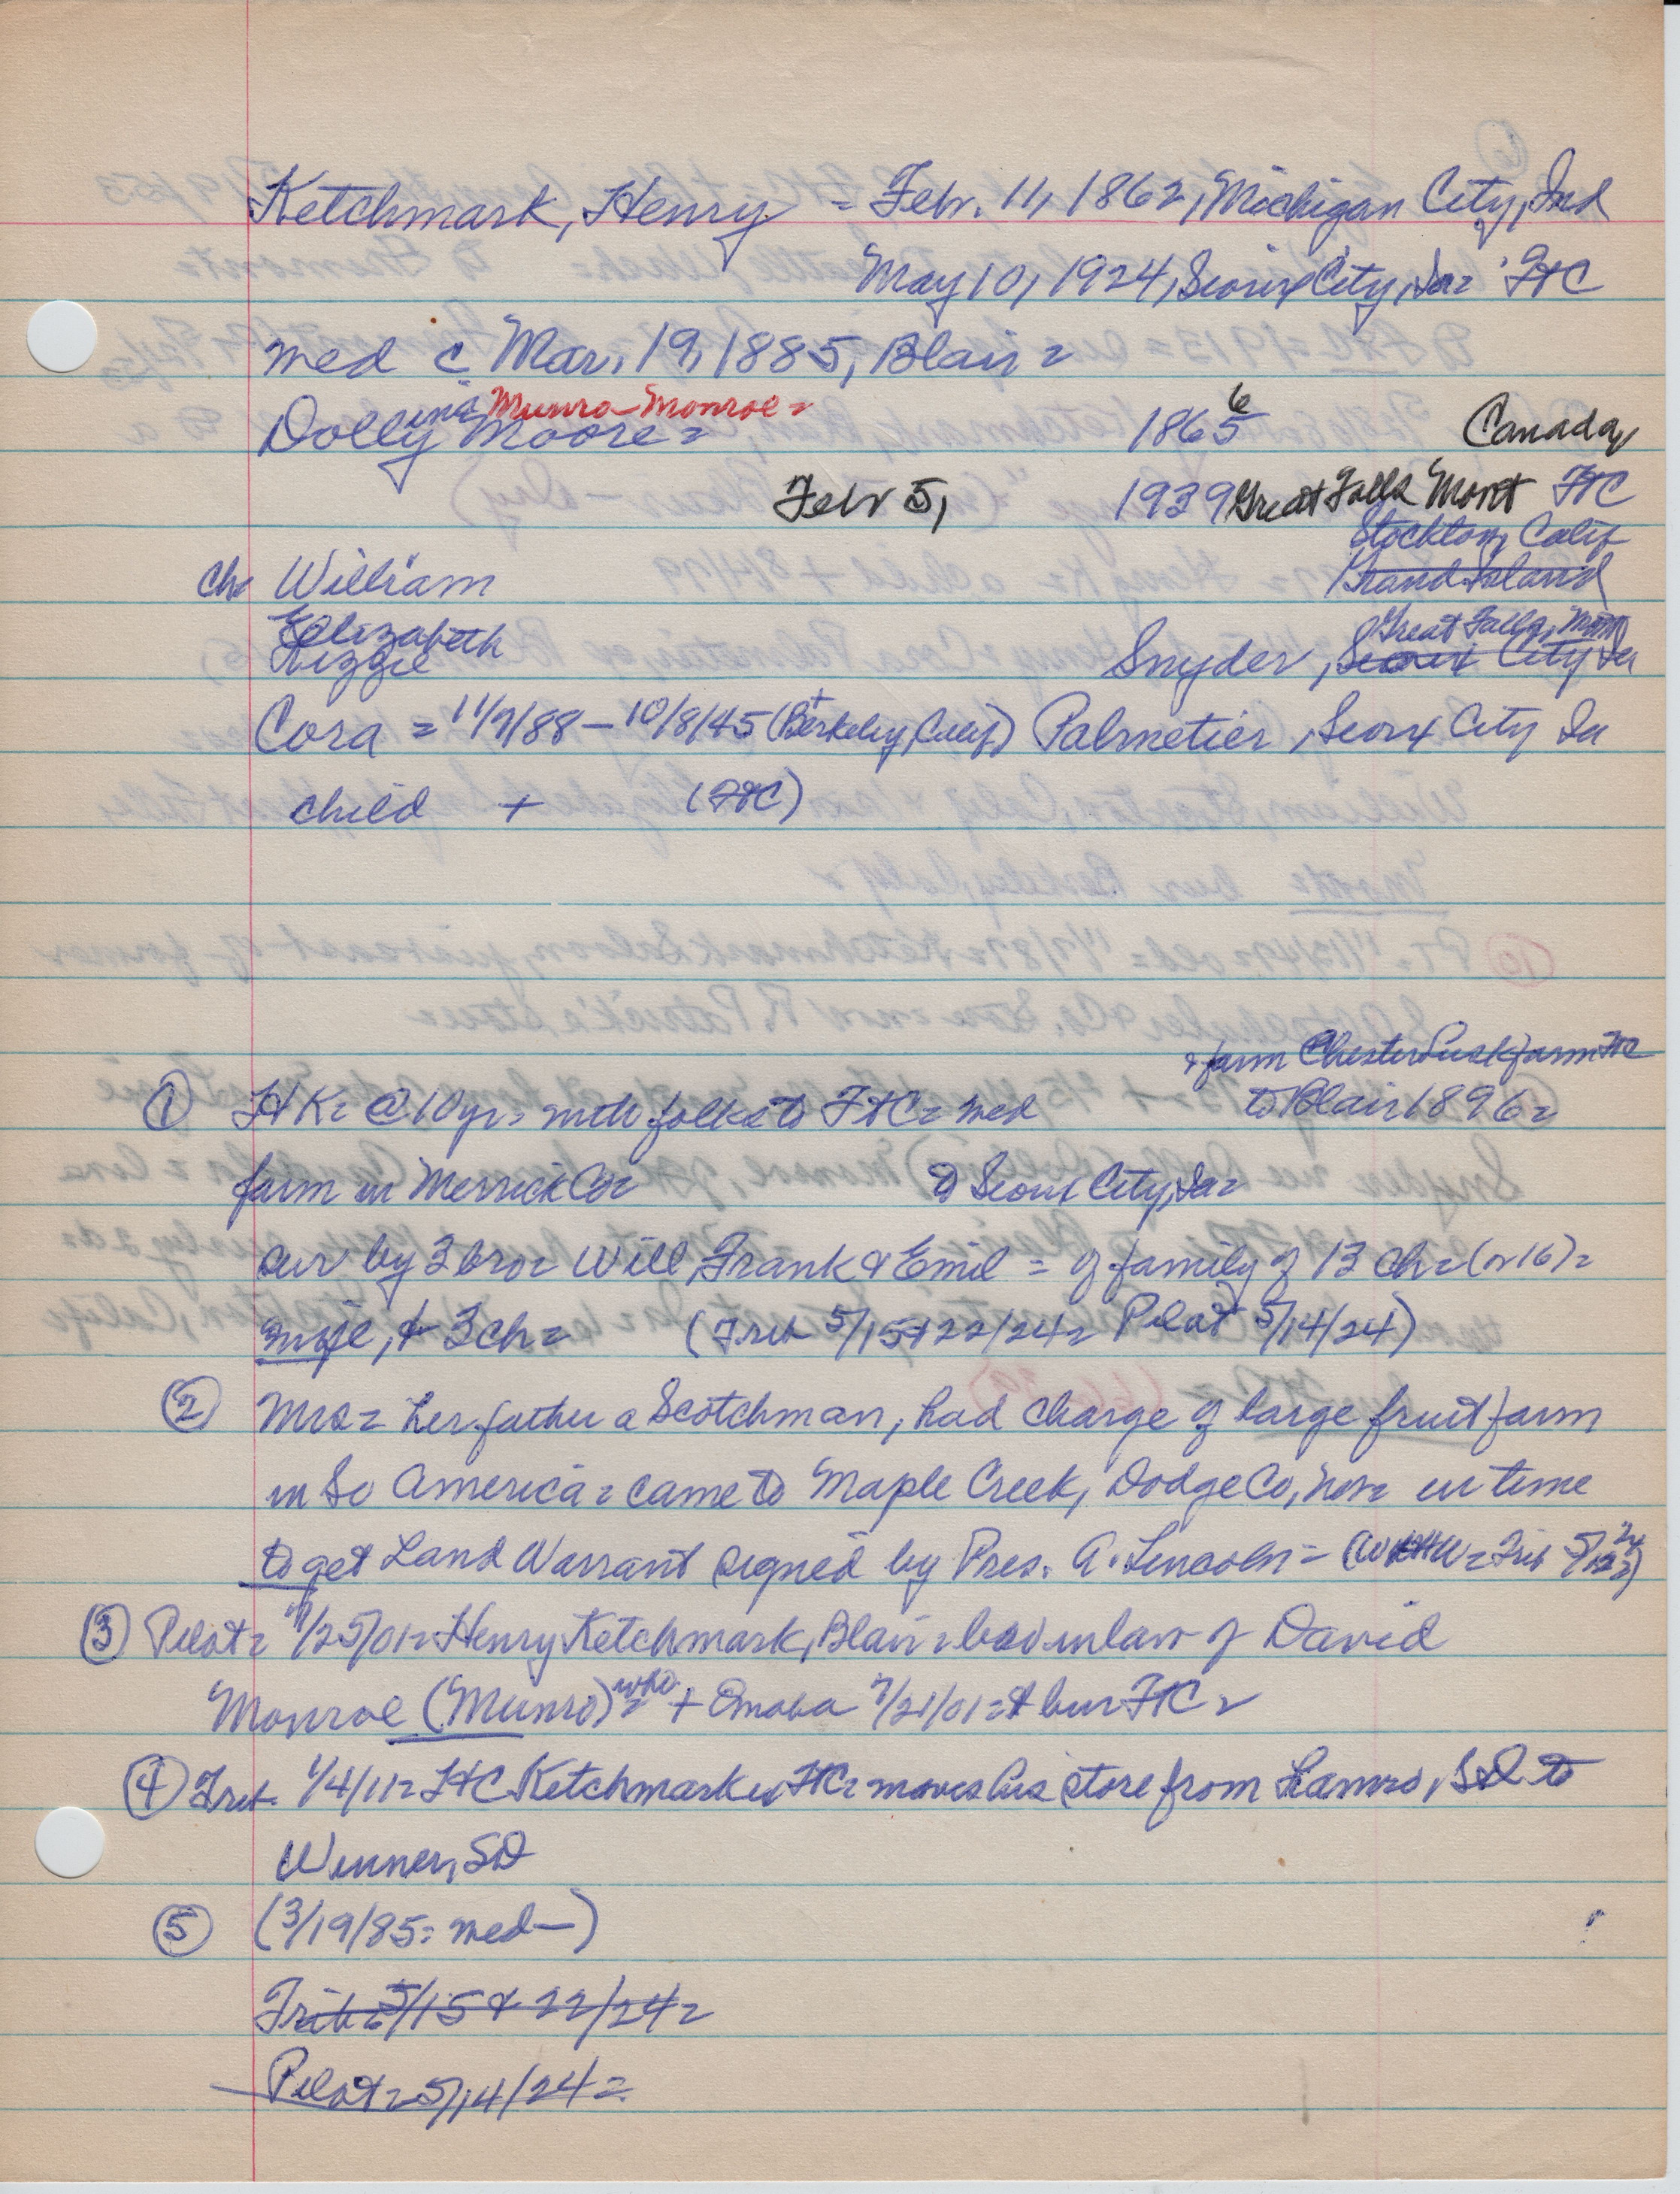 Ketchmark, Henry = Feb. 11, 1862, Michigan City, Ind
May 10, 1924, Sioux City, Ia= FtC
med c Mar. 19, 1885, Blair=
Munro-Monroe=
Dolly Moore= 1865 6 Canada
Feb 5, 1939 Great Falls Mont FtC
Stockton, Calif
ch= William Grand Island
Elizabeth Great Falls, Mont
Lizzie Snyder, Sioux City Ia
Cora = 11/9/88 - 10/8/45 (+ Berkeley, Calif.) Palmetier, Sioux City Ia
child + (FtC)
& farm Chester Lusk farm FtC
① HK= @ 10 yr= with folks to FtC= med to Blair 1896=
farm in Merrick Co= to Sioux City, Ia=
sur by 3 bro= Will, Frank & Emil = of family of 13 ch= (or 16)=
wife, & 3 ch= (Trib 5/15 & 22/24= Pilot 5/14/24)
② Mrs= her father a Scotchman, had charge of large fruit farm
in So America= came to Maple Creek, Dodge Co, in time
to get Land Warrant signed by Pres. A. Lincoln= Trib
③ Pilot= 7/25/01= Henry Ketchmark, Blair= bro in law of David
Monroe (Munro)= who + Omaha 7/21/01= & bur FtC=
④ Trib. 1/4/11= FtC Ketchmark FtC= moves his store from Lamro, SD to
Winner, SD
⑤ (3/19/85= med-)
Trib= 5/15 & 22/24=
Pilot= 5/14/24=